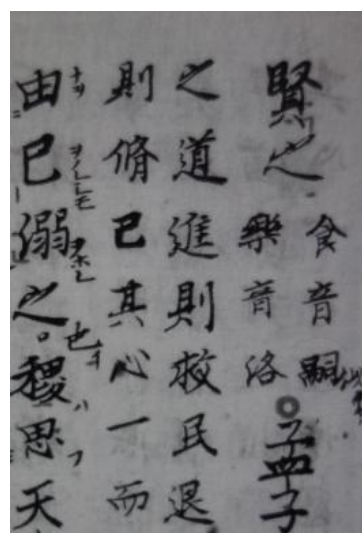 賢之
食音嗣
樂音洛
○孟子
之道進則救民退
則脩己其心一而
由己溺之也稷思天